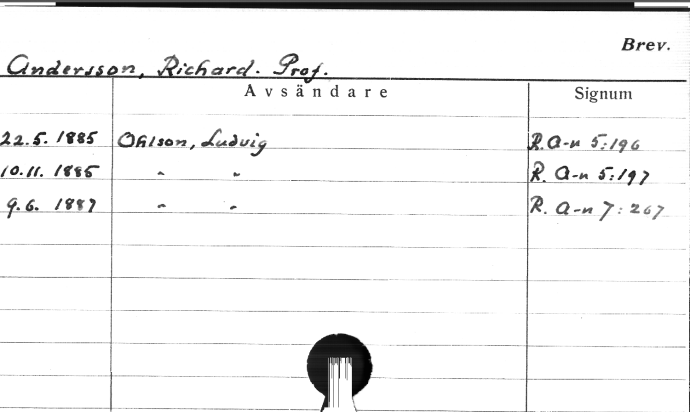 Brev.
Andersson, Richard. Prof.
Avsändare Signum
22.5. 1885 Ohlson, Ludvig R. a-n 5:196
10.11. 1885 " " R. a-n 5:197
9.6. 1887 " " R. a-n 7:267